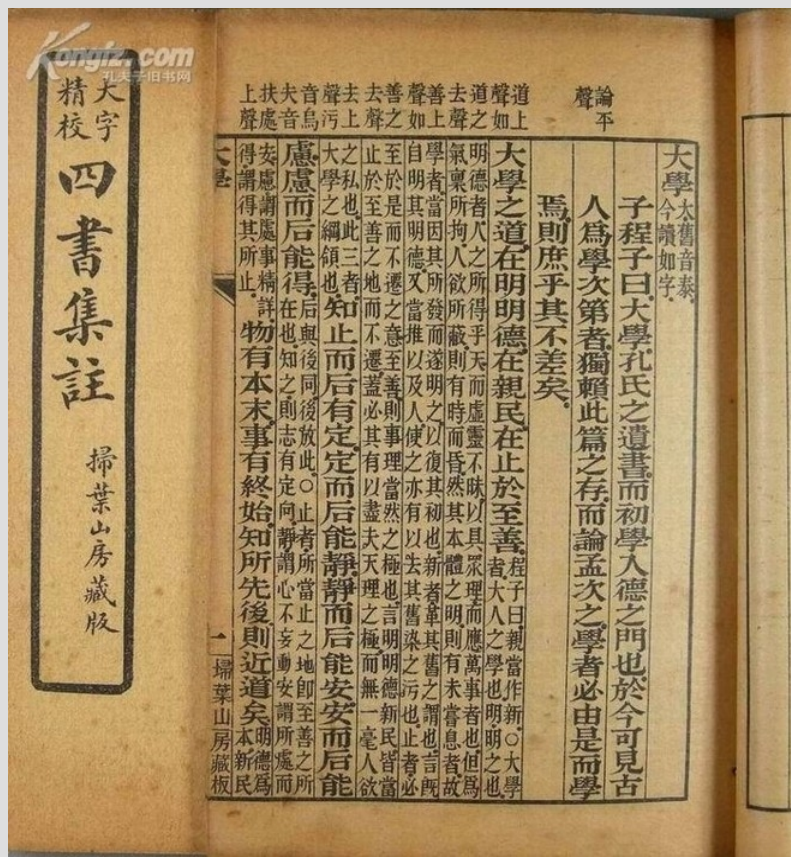 論平
聲
道上
聲如
道之
去聲
善上
聲如
善之
去聲
去上
聲污
音烏
夫音
扶處
上聲
大學 太舊音泰.
今讀如字.
子程子曰.大學.孔氏之遺書.而初學入德之門也.於今可見古
人爲學次第者.獨賴此篇之存.而論孟次之.學者必由是而學
焉.則庶乎其不差矣.
大學之道.在明明德.在親民.在止於至善.程子曰.親當作新.○大學
者.大人之學也.明.明之也.
明德者.人之所得乎天.而虛靈不昧.以具衆理而應萬事者也.但爲
氣稟所拘.人欲所蔽.則有時而昏.然其本體之明.則有未嘗息者.故
學者.當因其所發而遂明之.以復其初也.新者.革其舊之謂也.言旣
自明其明德.又當推以及人.使之亦有以去其舊染之污也.止者.必
至於是而不遷之意.至善.則事理當然之極也.言明明德新民.皆當
止於至善之地而不遷.蓋必其有以盡夫天理之極.而無一毫人欲
之私也.此三者.
大學之綱領也.
知止而后有定.定而后能靜.靜而后能安.安而后能
慮.慮而后能得.后與後同.後放此.○止者.所當止之地.卽至善之所
在也.知之.則志有定向.靜.謂心不妄動.安.謂所處而
安.慮.謂處事精詳.
得.謂得其所止.
物有本末.事有終始.知所先後.則近道矣.明德爲
本.新民
大學 一 埽葉山房藏板
大字
精校
四書集註
掃葉山房藏版
Kongfz.com
孔夫子旧书网